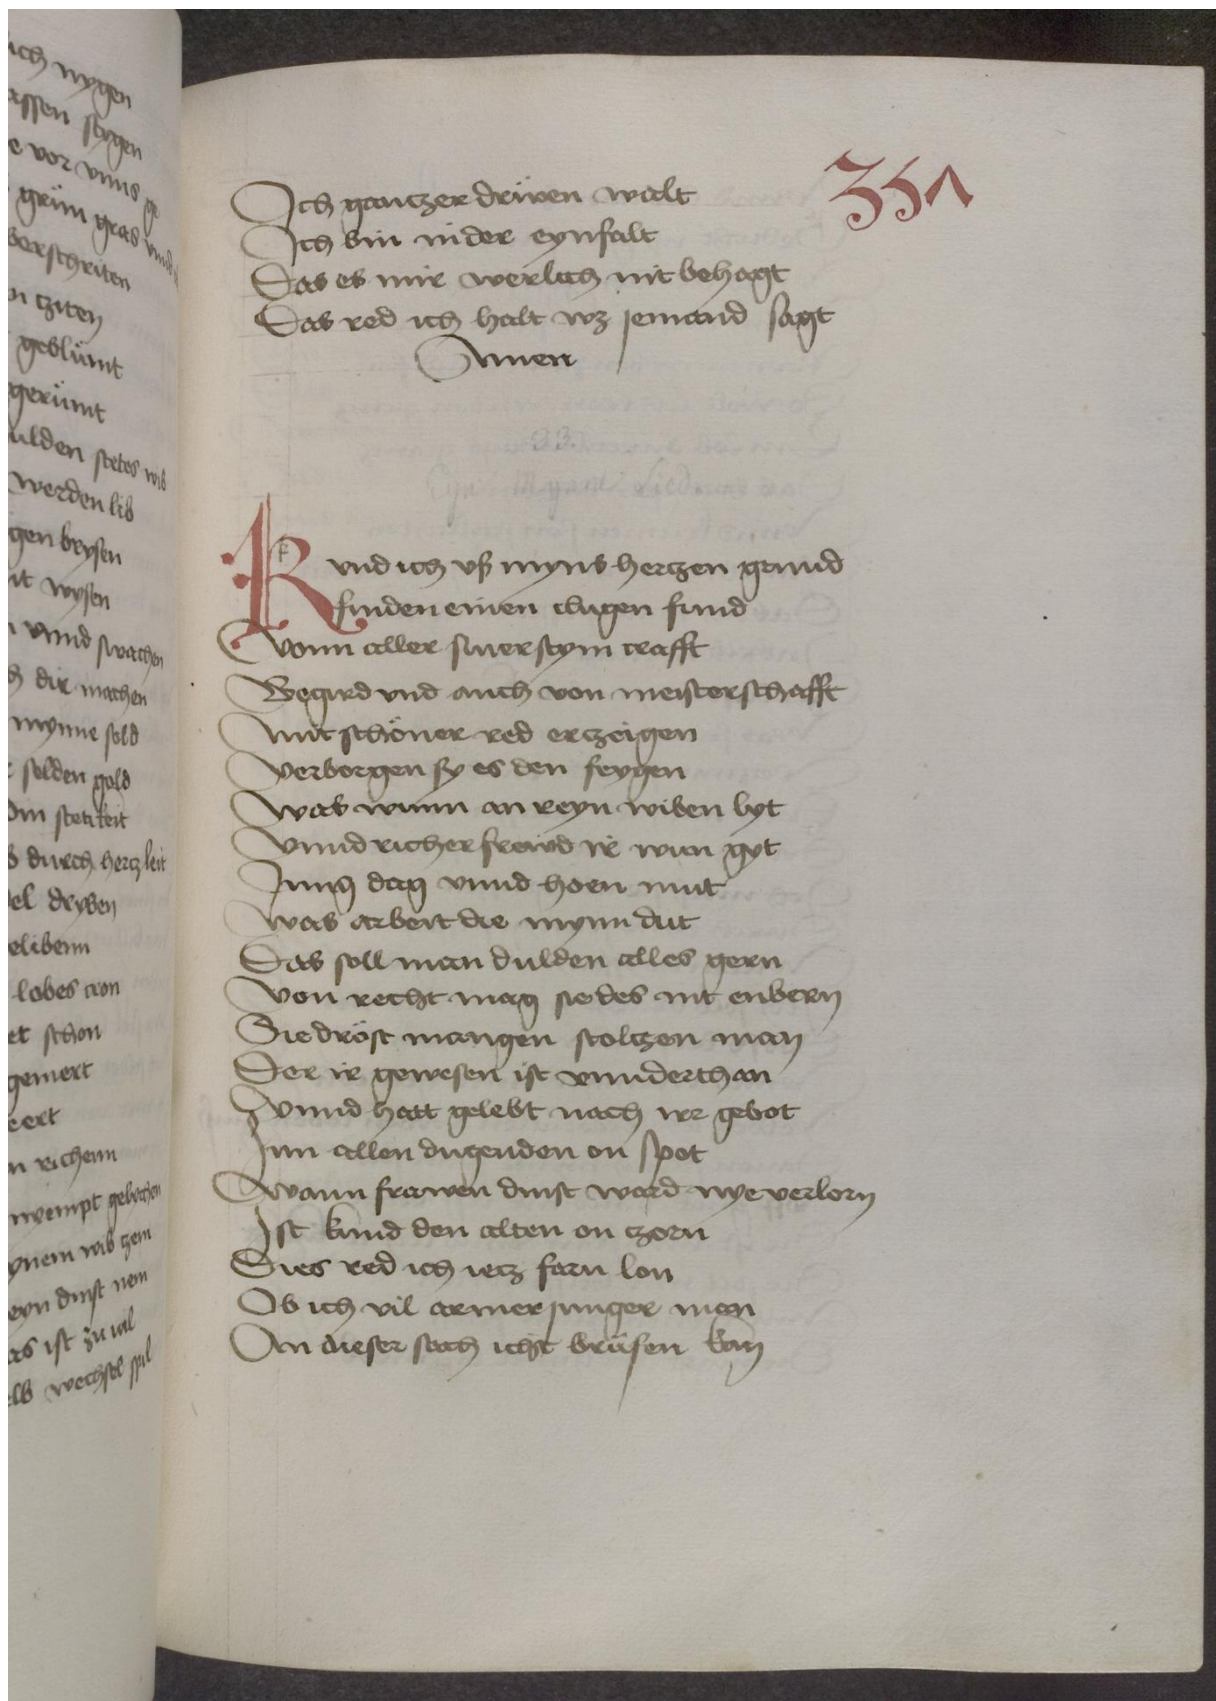 ich nygen
assen stygen
e vor vnns ge
grün gras vnnd
verschriten
n cziten
geblümt
gerümt
ulden stetes wib
werden lib
gen brysen
it wysen
vnnd swachen
h dir machen
mynne sold
selden gold
Din stetikeit
durch hercz leit
el dryben
elibenn
lobes cron
et schon
gemert
eert
n richenn
nympt gebrechen
ynem wib zem
eyn dinst nem
as ist zu vil
elb wechsel spil
351
Ich gantzer drüwen walt
Ich bin in der eynfalt
Das es mir werlich nit behagt
Das red ich halt wz jemand sagt
Amen
33.
Kvnd ich vß myns hertzen grund
finden einen clugen fund
Vonn aller siner stym crafft
Begird vnd auch von meisterschafft
mit schöner red erczeigen
Verborgen sy es den feygen
Was wunn an reyn wiben lyt
Vnnd richer frewd ir wun gyt
Jung dag vnnd hoen mut
Was arbeit die mynn dut
Das soll man dulden alles gern
Von recht mag sie des nit enbern
Sie dröst mangen stoltzen man
Der ir gewesen ist vnnderthan
Vnnd hatt gelebt nach irr gebot
Inn allen dugenden on spot
Wann frawen dinst ward nye verlorn
Ist kund den alten on zorn
Dies red ich iecz farn lon
Ob ich vil armer junger man
An dieser sach icht brüfen kan